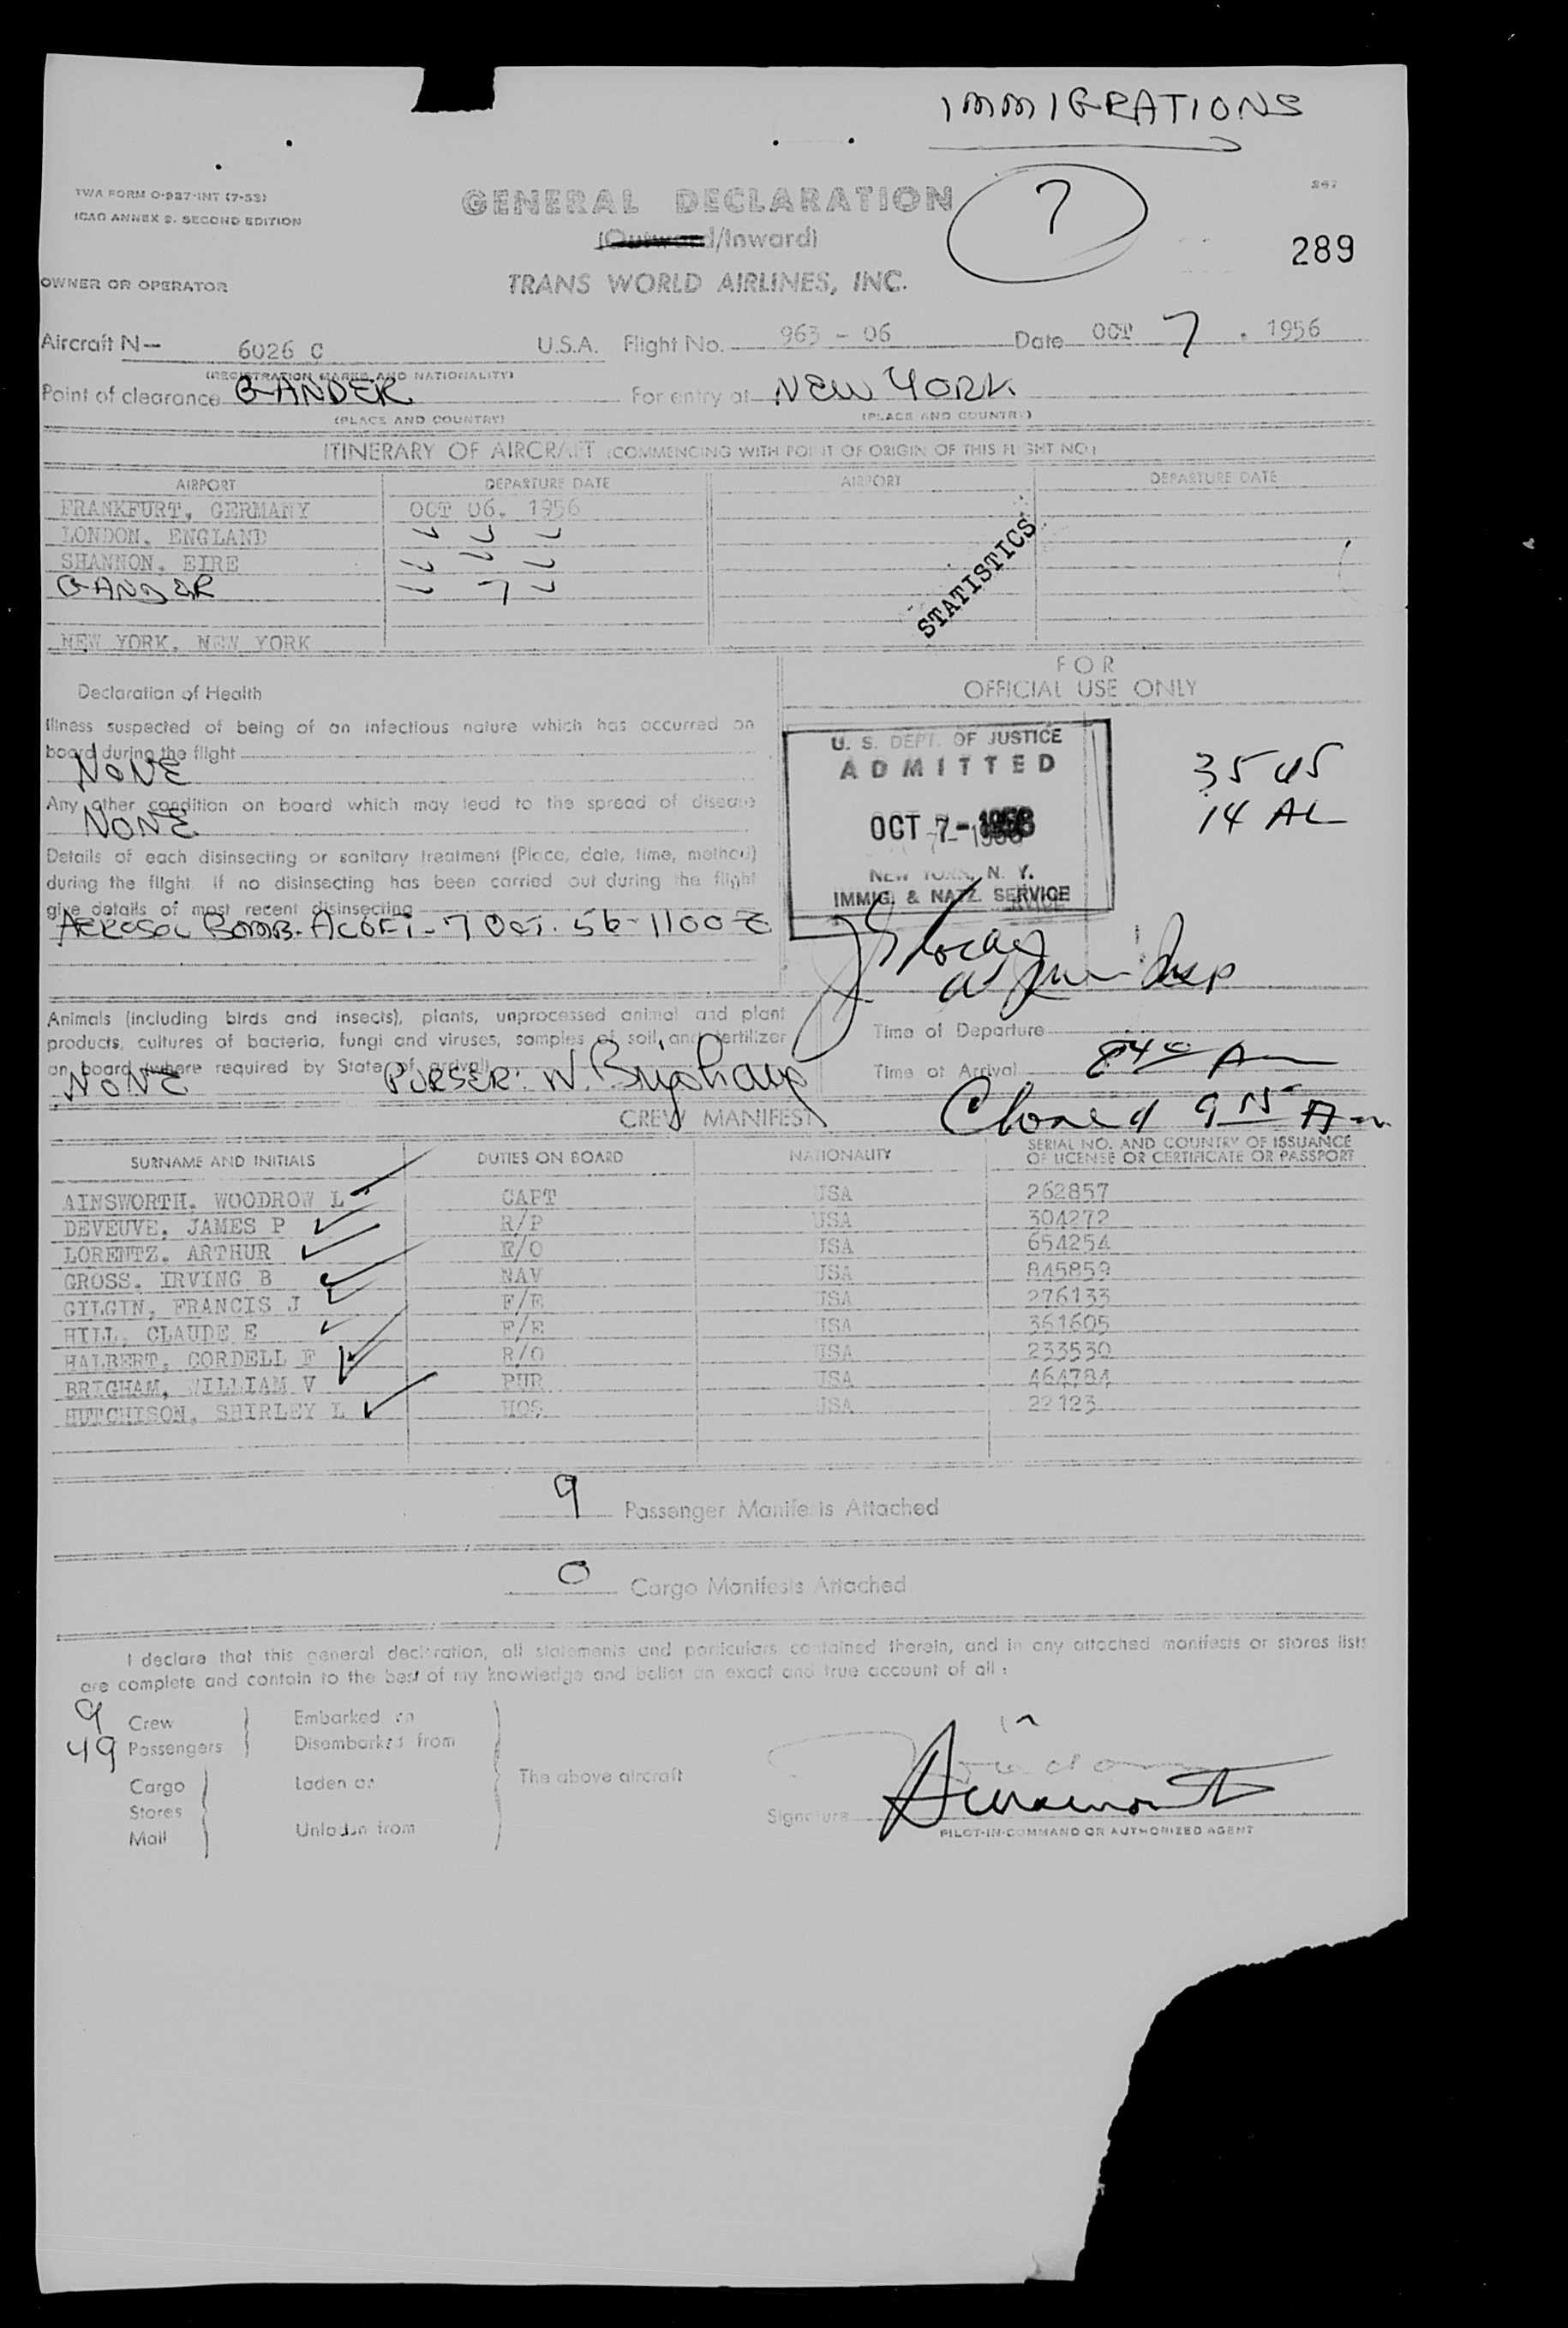 IMMIGRATIONS
TWA FORM O-927-INT (7-53)
ICAO ANNEX 9. SECOND EDITION
GENERAL DECLARATION
7
247
(Outward/Inward)
289
OWNER OR OPERATOR
TRANS WORLD AIRLINES, INC.
Aircraft N— 6026 C U.S.A. Flight No. 963 - 06 Date OCT 7. 1956
(REGISTRATION MARKS AND NATIONALITY)
Point of clearance GANDER For entry at NEW YORK
(PLACE AND COUNTRY) (PLACE AND COUNTRY)
ITINERARY OF AIRCRAFT (COMMENCING WITH POINT OF ORIGIN OF THIS FLIGHT NO)
AIRPORT DEPARTURE DATE AIRPORT DEPARTURE DATE
FRANKFURT, GERMANY OCT 06. 1956
LONDON, ENGLAND
SHANNON, EIRE
GANDER 7
STATISTICS
NEW YORK, NEW YORK
FOR
OFFICIAL USE ONLY
Declaration of Health
Illness suspected of being of an infectious nature which has occurred on
board during the flight
NONE
Any other condition on board which may lead to the spread of disease
NONE
Details of each disinsecting or sanitary treatment (Place, date, time, method)
during the flight. If no disinsecting has been carried out during the flight
give details of most recent disinsecting
AEROSOL BOMB-ACOFT-7 OCT. 56-1100 Z
U. S. DEPT. OF JUSTICE
ADMITTED
OCT 7-1956
NEW YORK, N. Y.
IMMIG. & NATZ. SERVICE
35 US
14 AL
Animals (including birds and insects), plants, unprocessed animal and plant
products, cultures of bacteria, fungi and viruses, samples of soil and fertilizer
on board (where required by State of arrival)
NONE PURSER: W. Brigham
Time of Departure
Time of Arrival 840 Am
Closed 915 Am
CREW MANIFEST
SURNAME AND INITIALS DUTIES ON BOARD NATIONALITY SERIAL NO. AND COUNTRY OF ISSUANCE
OF LICENSE OR CERTIFICATE OR PASSPORT
AINSWORTH, WOODROW L CAPT USA 262857
DEVEUVE, JAMES P R/P USA 304272
LORENTZ, ARTHUR F/O USA 654254
GROSS, IRVING B NAV USA 845859
GILGIN, FRANCIS J F/E USA 276133
HILL, CLAUDE E F/E USA 361605
HALBERT, CORDELL F R/O USA 233530
BRIGHAM, WILLIAM V PUR USA 464784
HUTCHISON, SHIRLEY L HOS USA 22123
9 Passenger Manifests Attached
0 Cargo Manifests Attached
I declare that this general declaration, all statements and particulars contained therein, and in any attached manifests or stores lists
are complete and contain to the best of my knowledge and belief an exact and true account of all:
9 Crew Embarked on
49 Passengers Disembarked from
Cargo Laden on The above aircraft
Stores
Mail Unladen from
Signature
PILOT-IN-COMMAND OR AUTHORIZED AGENT